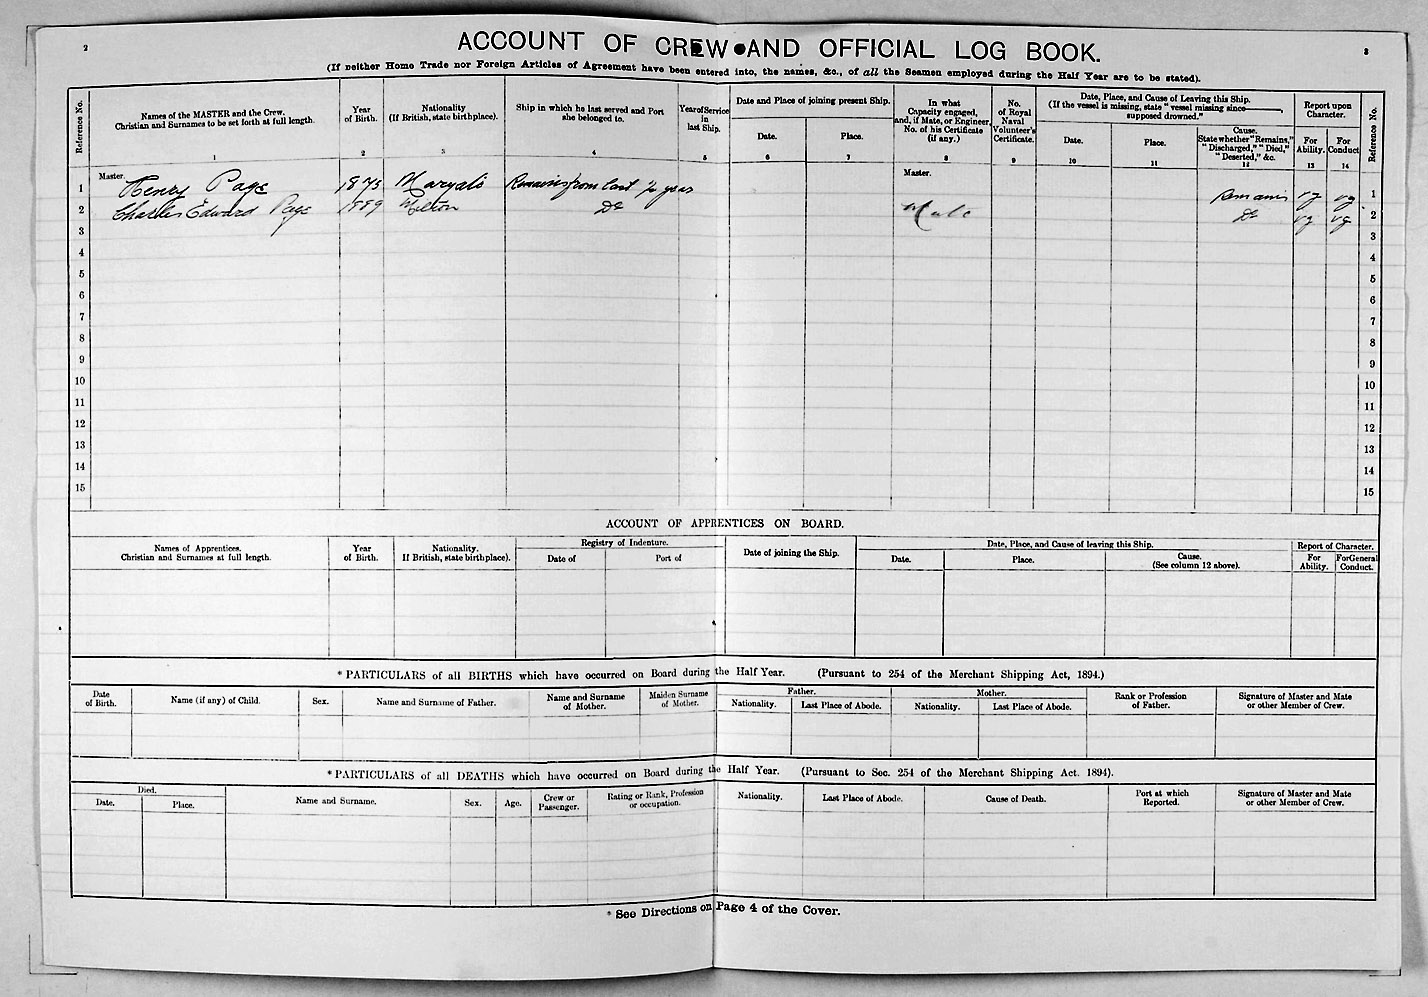 2
ACCOUNT OF CREW AND OFFICIAL LOG BOOK.
3
(If neither Home Trade nor Foreign Articles of Agreement have been entered into, the names, &c., of all the Seamen employed during the Half Year are to be stated).
Reference No.
Names of the MASTER and the Crew.
Christian and Surnames to be set forth at full length.
1
Year
of Birth.
2
Nationality
(If British, state birthplace).
3
Ship in which he last served and Port
she belonged to.
4
Year of Service
in
last Ship.
5
Date and Place of joining present Ship.
Date.
6
Place.
7
In what
Capacity engaged,
and, if Mate, or Engineer,
No. of his Certificate
(if any.)
8
No.
of Royal
Naval
Volunteer's
Certificate.
9
Date, Place, and Cause of Leaving this Ship.
(If the vessel is missing, state "vessel missing since
supposed drowned."
Date.
10
Place.
11
Cause.
State whether "Remains,"
"Discharged," "Died,"
"Deserted," &c.
12
Report upon
Character.
For
Ability.
13
For
Conduct
14
Reference No.
Master.
Master.
1 Henry Page 1873 Remains from last ½ year Remains vg vg 1
2 Charles Edward Page 1889 Milton Do Mate Do vg vg 2
3 3
4 4
5 5
6 6
7 7
8 8
9 9
10 10
11 11
12 12
13 13
14 14
15 15
ACCOUNT OF APPRENTICES ON BOARD.
Names of Apprentices.
Christian and Surnames at full length.
Year
of Birth.
Nationality.
If British, state birthplace).
Registry of Indenture.
Date of
Port of
Date of joining the Ship.
Date, Place, and Cause of leaving this Ship.
Date.
Place.
Cause.
(See column 12 above).
Report of Character.
For
Ability.
For General
Conduct.
* PARTICULARS of all BIRTHS which have occurred on Board during the Half Year. (Pursuant to 254 of the Merchant Shipping Act, 1894.)
Date
of Birth.
Name (if any) of Child.
Sex.
Name and Surname of Father.
Name and Surname
of Mother.
Maiden Surname
of Mother.
Father.
Nationality.
Last Place of Abode.
Mother.
Nationality.
Last Place of Abode.
Rank or Profession
of Father.
Signature of Master and Mate
or other Member of Crew.
* PARTICULARS of all DEATHS which have occurred on Board during the Half Year. (Pursuant to Sec. 254 of the Merchant Shipping Act. 1894).
Died.
Date.
Place.
Name and Surname.
Sex.
Age.
Crew or
Passenger.
Rating or Rank, Profession
or occupation.
Nationality.
Last Place of Abode.
Cause of Death.
Port at which
Reported.
Signature of Master and Mate
or other Member of Crew.
* See Directions on Page 4 of the Cover.